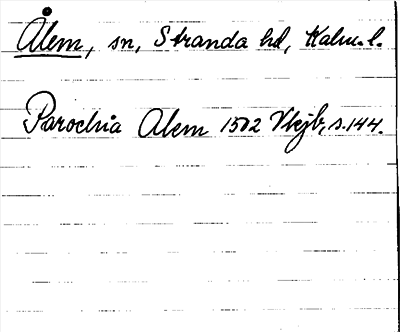 Ålem, sn, Stranda hd, Kalm. l.
Parochia Alem 1502 Vkjb, s. 144.